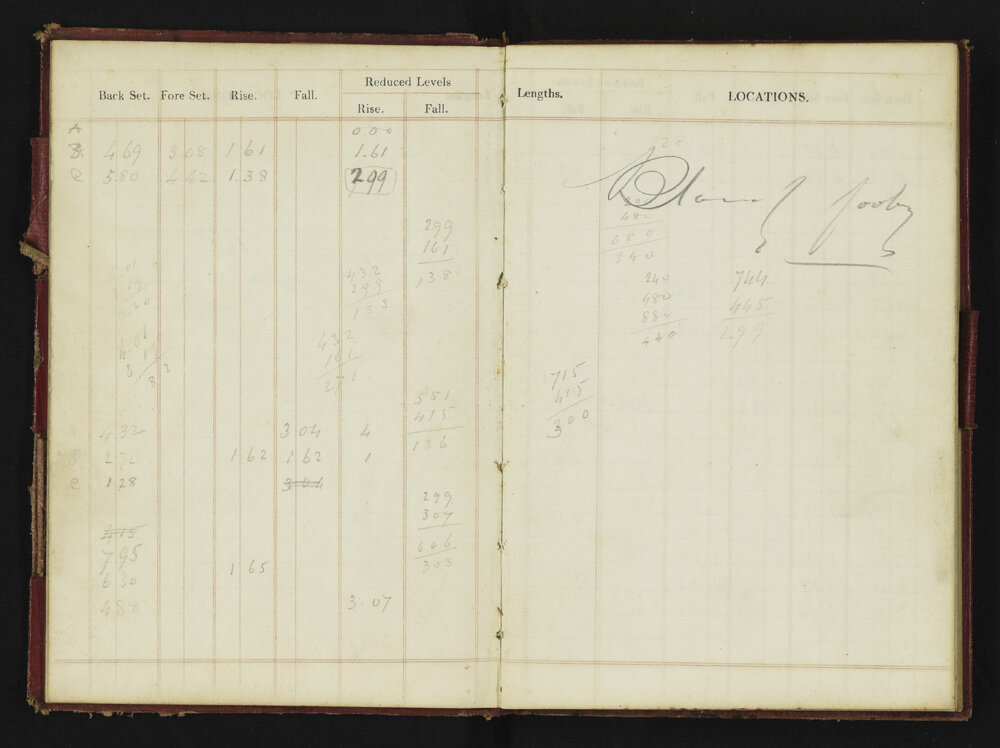 Back Set. Fore Set. Rise. Fall. Reduced Levels
Rise. Fall.
A 0.00
B 4 69 3 08 1 61 1.61
C 5 80 4 42 1 38 2 99
299
161
138
432
299
133
432
161
271
551
415
136
4 32 3 04 4
2 70 1 62 1 62 1
C 1 28 3 04
299
307
606
303
4 15
7 95
6 30 1 65
4 88 3.07
Lengths. LOCATIONS.
128
480
680
340
240
480
880
440
744
445
299
715
415
300